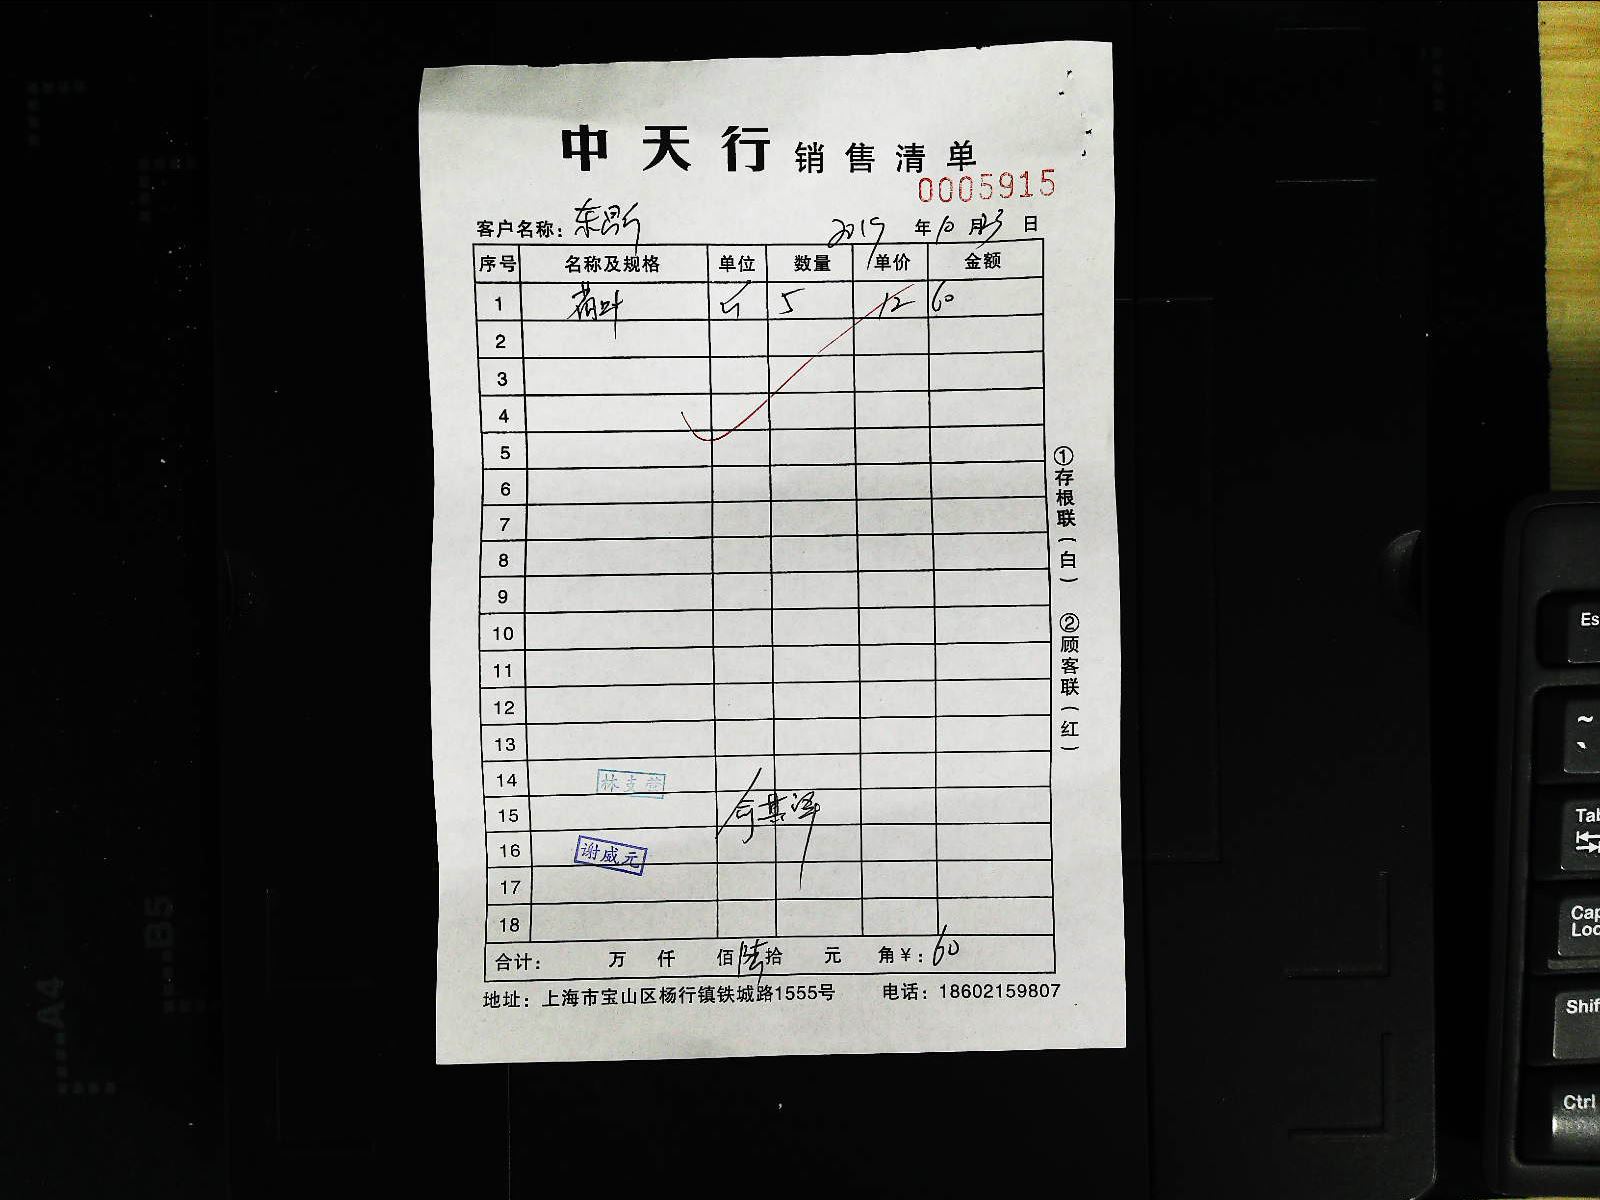 中天行销售清单
0005915
客户名称： 2019年10月23日
序号 名称及规格 单位 数量 单价 金额
1 荷叶 斤 5 12 60
2
3
4
5
6
7
8
9
10
11
12
13
14
15
16
17
18
林支营
谢威元
合计： 万 仟 佰陆拾 元 角￥：60
地址：上海市宝山区杨行镇铁城路1555号 电话：18602159807
①存根联（白）
②顾客联（红）
Es
~
`
Tab
Cap
Loc
Shif
Ctrl
B5
A4